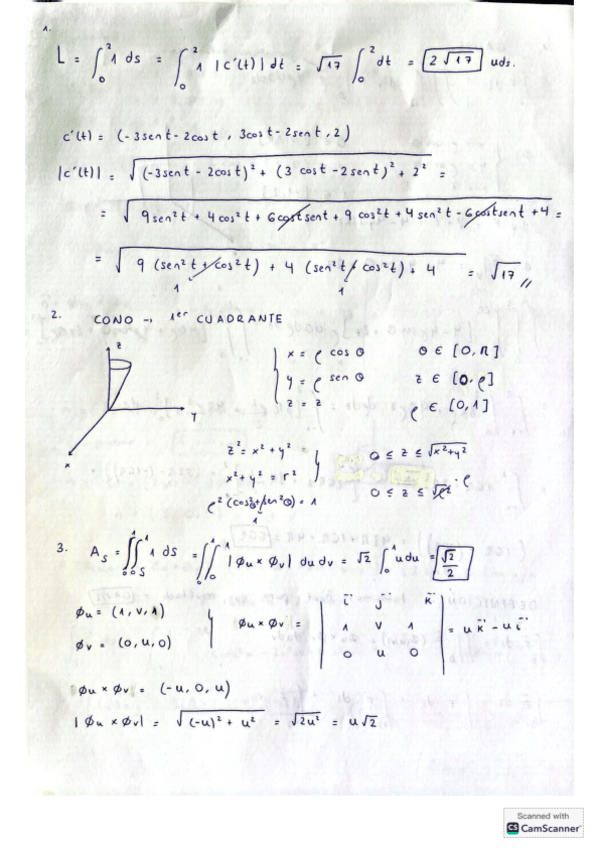 1.
L = ∫₀² 1 ds = ∫₀² 1 |c'(t)| dt = √17 ∫₀² dt = 2√17 uds.
c'(t) = (-3sent - 2cost, 3cost - 2sent, 2)
|c'(t)| = √((-3sent - 2cost)² + (3 cost - 2sent)² + 2²) =
= √(9sen²t + 4cos²t + 6costsent + 9cos²t + 4sen²t - 6costsent + 4) =
= √(9 (sen²t + cos²t) + 4 (sen²t + cos²t) + 4) = √17 //
1 1
2. CONO → 1er CUADRANTE
z
y
x
x = ρ cos θ θ ∈ [0, π]
y = ρ sen θ z ∈ [0, ρ]
z = z ρ ∈ [0, 1]
z² = x² + y² = 0 ≤ z ≤ √(x²+y²)
x² + y² = r² 0 ≤ z ≤ √ρ² = ρ
ρ² (cos²θ + sen²θ) = 1
1
3. A_S = ∫₀¹∫₀¹_S 1 ds = ∫₀¹∫₀¹ |ϕu x ϕv| du dv = √2 ∫₀¹ u du = √2/2
ϕu = (1, v, 1)
ϕv = (0, u, 0)
ϕu x ϕv = | i j k |
| 1 v 1 | = u k - u i
| 0 u 0 |
ϕu x ϕv = (-u, 0, u)
|ϕu x ϕv| = √((-u)² + u²) = √2u² = u√2
Scanned with
CS CamScanner